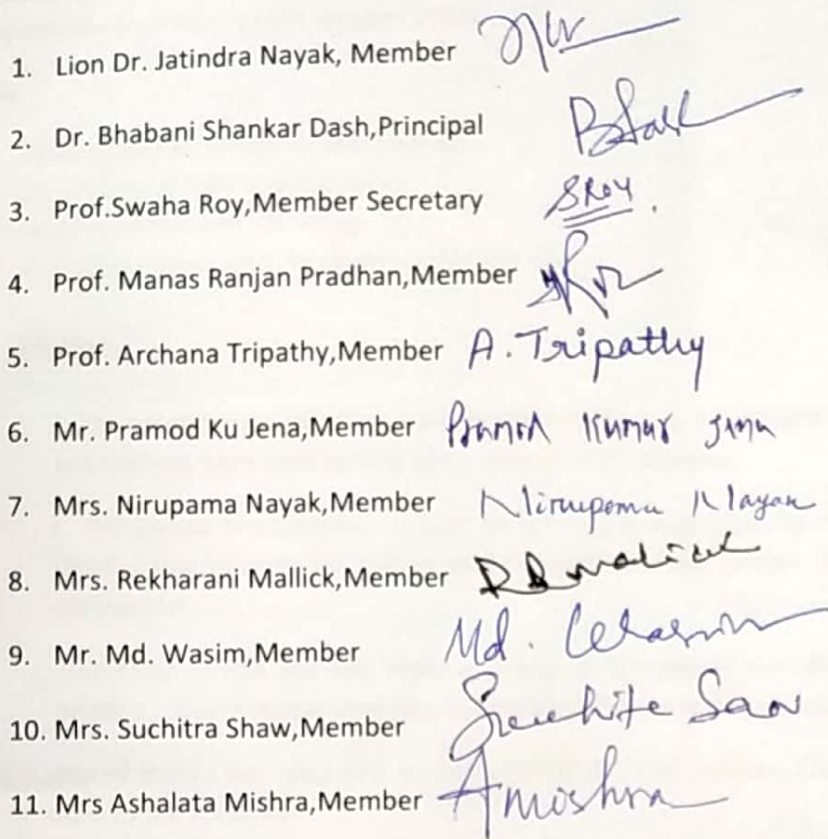 1. Lion Dr. Jatindra Nayak, Member
2. Dr. Bhabani Shankar Dash,Principal
3. Prof.Swaha Roy,Member Secretary SRoy.
4. Prof. Manas Ranjan Pradhan,Member
5. Prof. Archana Tripathy,Member A. Tripathy
6. Mr. Pramod Ku Jena,Member Pramod Kumar Jena
7. Mrs. Nirupama Nayak,Member Nirupama Nayak
8. Mrs. Rekharani Mallick,Member
9. Mr. Md. Wasim,Member Md. Wasim
10. Mrs. Suchitra Shaw,Member
11. Mrs Ashalata Mishra,Member AMishra